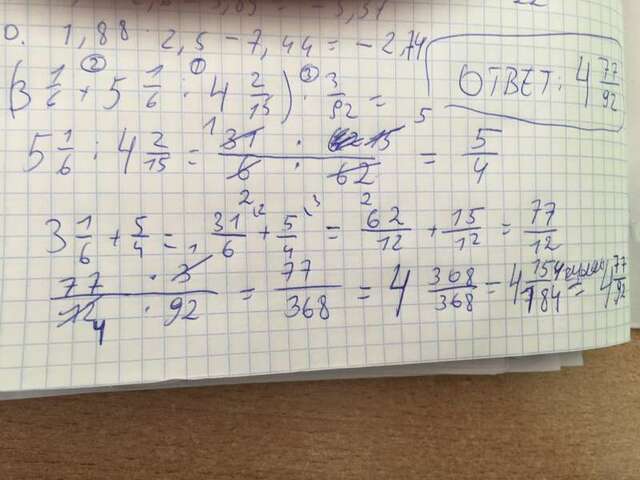 0. 1,88 · 2,5 - 7,44 = - 2,74
(3 1/6 + 5 1/6 : 4 2/15) · 3/92 =
ОТВЕТ: 4 77/92
5 1/6 : 4 2/15 = 31 · 15 / 6 · 62 = 5/4
3 1/6 + 5/4 = 31/6 + 5/4 = 62/12 + 15/12 = 77/12
77 · 3 / 12 · 92 = 77/368 = 4 308/368 = 4 154/184 = 4 77/92